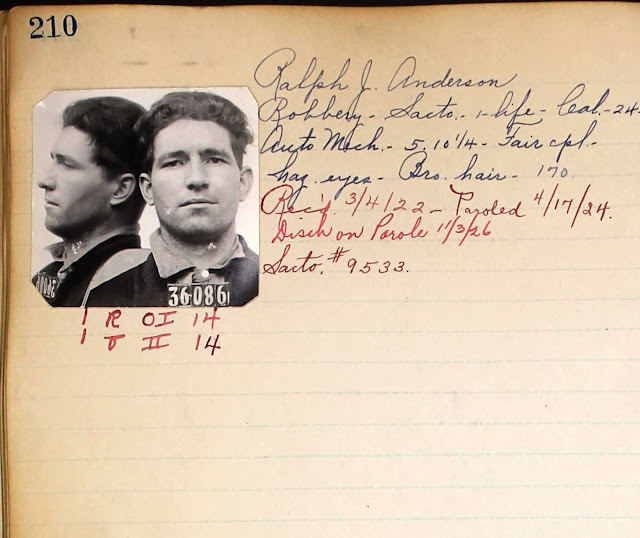 210
Ralph J. Anderson
Robbery - Sacto. - 1-life - Cal. - 24 -
Auto Mech. - 5.10 1/4 - Fair cpl. -
haz. eyes - Bro. hair - 170
Rec'd 3/4/22 - Paroled 4/17/24.
Disch on Parole 11/3/26
Sacto. # 9533.
36086
1 R OI 14
1 U II 14